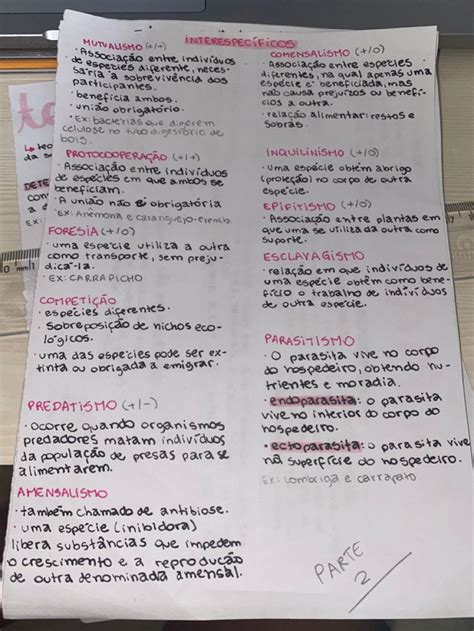 INTERESPECÍFICOS
MUTUALISMO (+/+)
• Associação entre indivíduos
de espécies diferente, neces-
sária a sobrevivência dos
participantes.
• beneficia ambos.
• união obrigatório.
• Ex: bactérias que digerem
celulose no tubo digestório de
bois.
PROTOCOOPERAÇÃO (+/+)
• Associação entre indivíduos
de espécies em que ambos se
beneficiam.
• A união não é obrigatória
• Ex: Anêmona e caranguejo-eremita
FORESIA (+/0)
• uma espécie utiliza a outra
como transporte, sem preju-
dicá-la.
• EX: CARRAPICHO
COMPETIÇÃO
• espécies diferentes.
• Sobreposição de nichos eco-
lógicos.
• uma das espécies pode ser ex-
tinta ou obrigada a emigrar.
PREDATISMO (+/-)
• ocorre quando organismos
predadores matam indivíduos
da população de presas para se
alimentarem.
AMENSALISMO
• também chamado de antibiose.
• uma espécie (inibidora)
libera substâncias que impedem
o crescimento e a reprodução
de outra denominada amensal.
COMENSALISMO (+/0)
• Associação entre espécies
diferentes, na qual apenas uma
espécie é beneficiada, mas
não causa prejuízos ou benefí-
cios a outra.
• relação alimentar: restos e
sobras.
INQUILINISMO (+/0)
• uma espécie obtém abrigo
(proteção) no corpo de outra
espécie.
EPIFITISMO (+/0)
• Associação entre plantas em
que uma se utiliza da outra como
suporte.
ESCLAVAGISMO
• relação em que indivíduos de
uma espécie obtêm como bene-
fício o trabalho de indivíduos
de outra espécie.
PARASITISMO
• O parasita vive no corpo
do hospedeiro, obtendo nu-
trientes e moradia.
• endoparasita: o parasita
vive no interior do corpo do
hospedeiro.
• ectoparasita: o parasita vive
na superfície do hospedeiro.
Ex: Lombriga e carrapato
PARTE
2